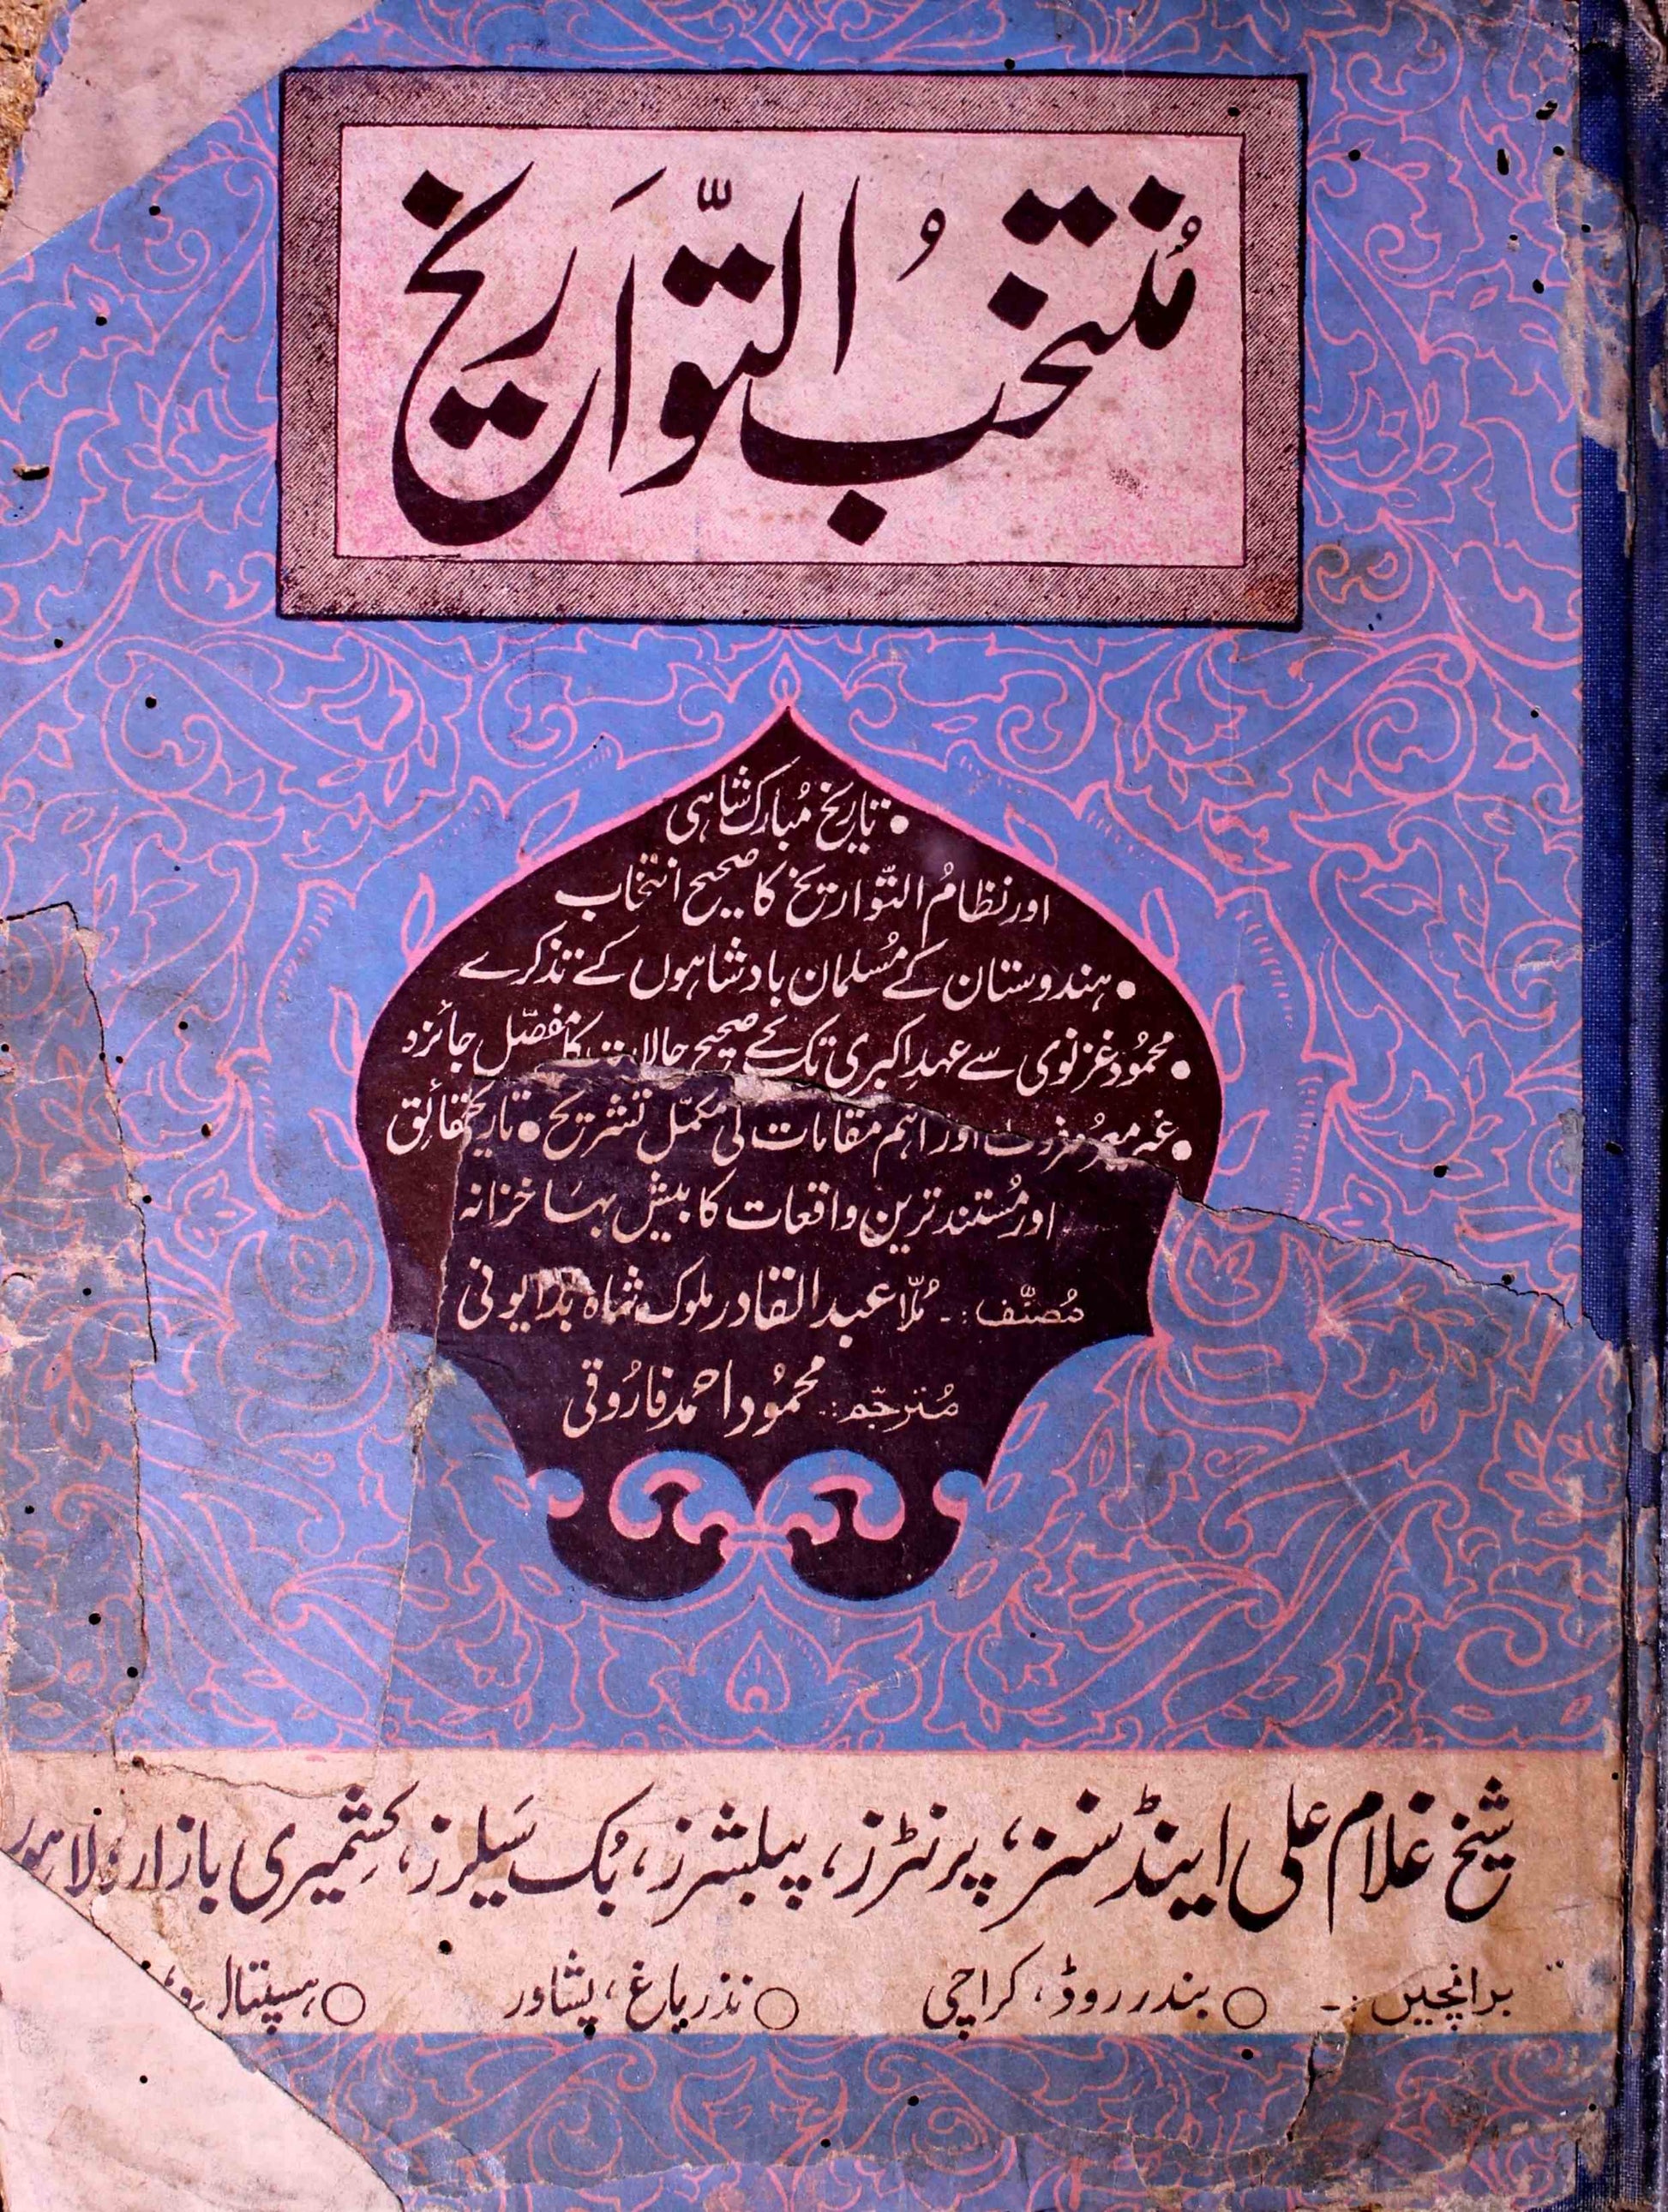 مُنتخبُ التّواریخ
• تاریخ مُبارک شاہی
اور نظامُ التّواریخ کا صحیح انتخاب
• ہندوستان کے مُسلمان بادشاہوں کے تذکرے
• محمُود غزنوی سے عہدِ اکبری تک کے صحیح حالات کا مفصّل جائزہ
• اور اہم مقامات کی مکمّل تشریح • تاریخی حقائق
اور مُستند ترین واقعات کا بیش بہا خزانہ
مُصنّف :۔ مُلّا عبدالقادر ملوک شاہ بدایونی
مُترجّم :۔ محمُود احمد فارُوقی
شیخ غلام علی اینڈ سنز، پرنٹرز، پبلشرز، بُک سَیلرز، کشمیری بازار، لاہور
برانچیں :۔ ○ بندر روڈ، کراچی ○ نذر باغ، پشاور ○ ہسپتال روڈ